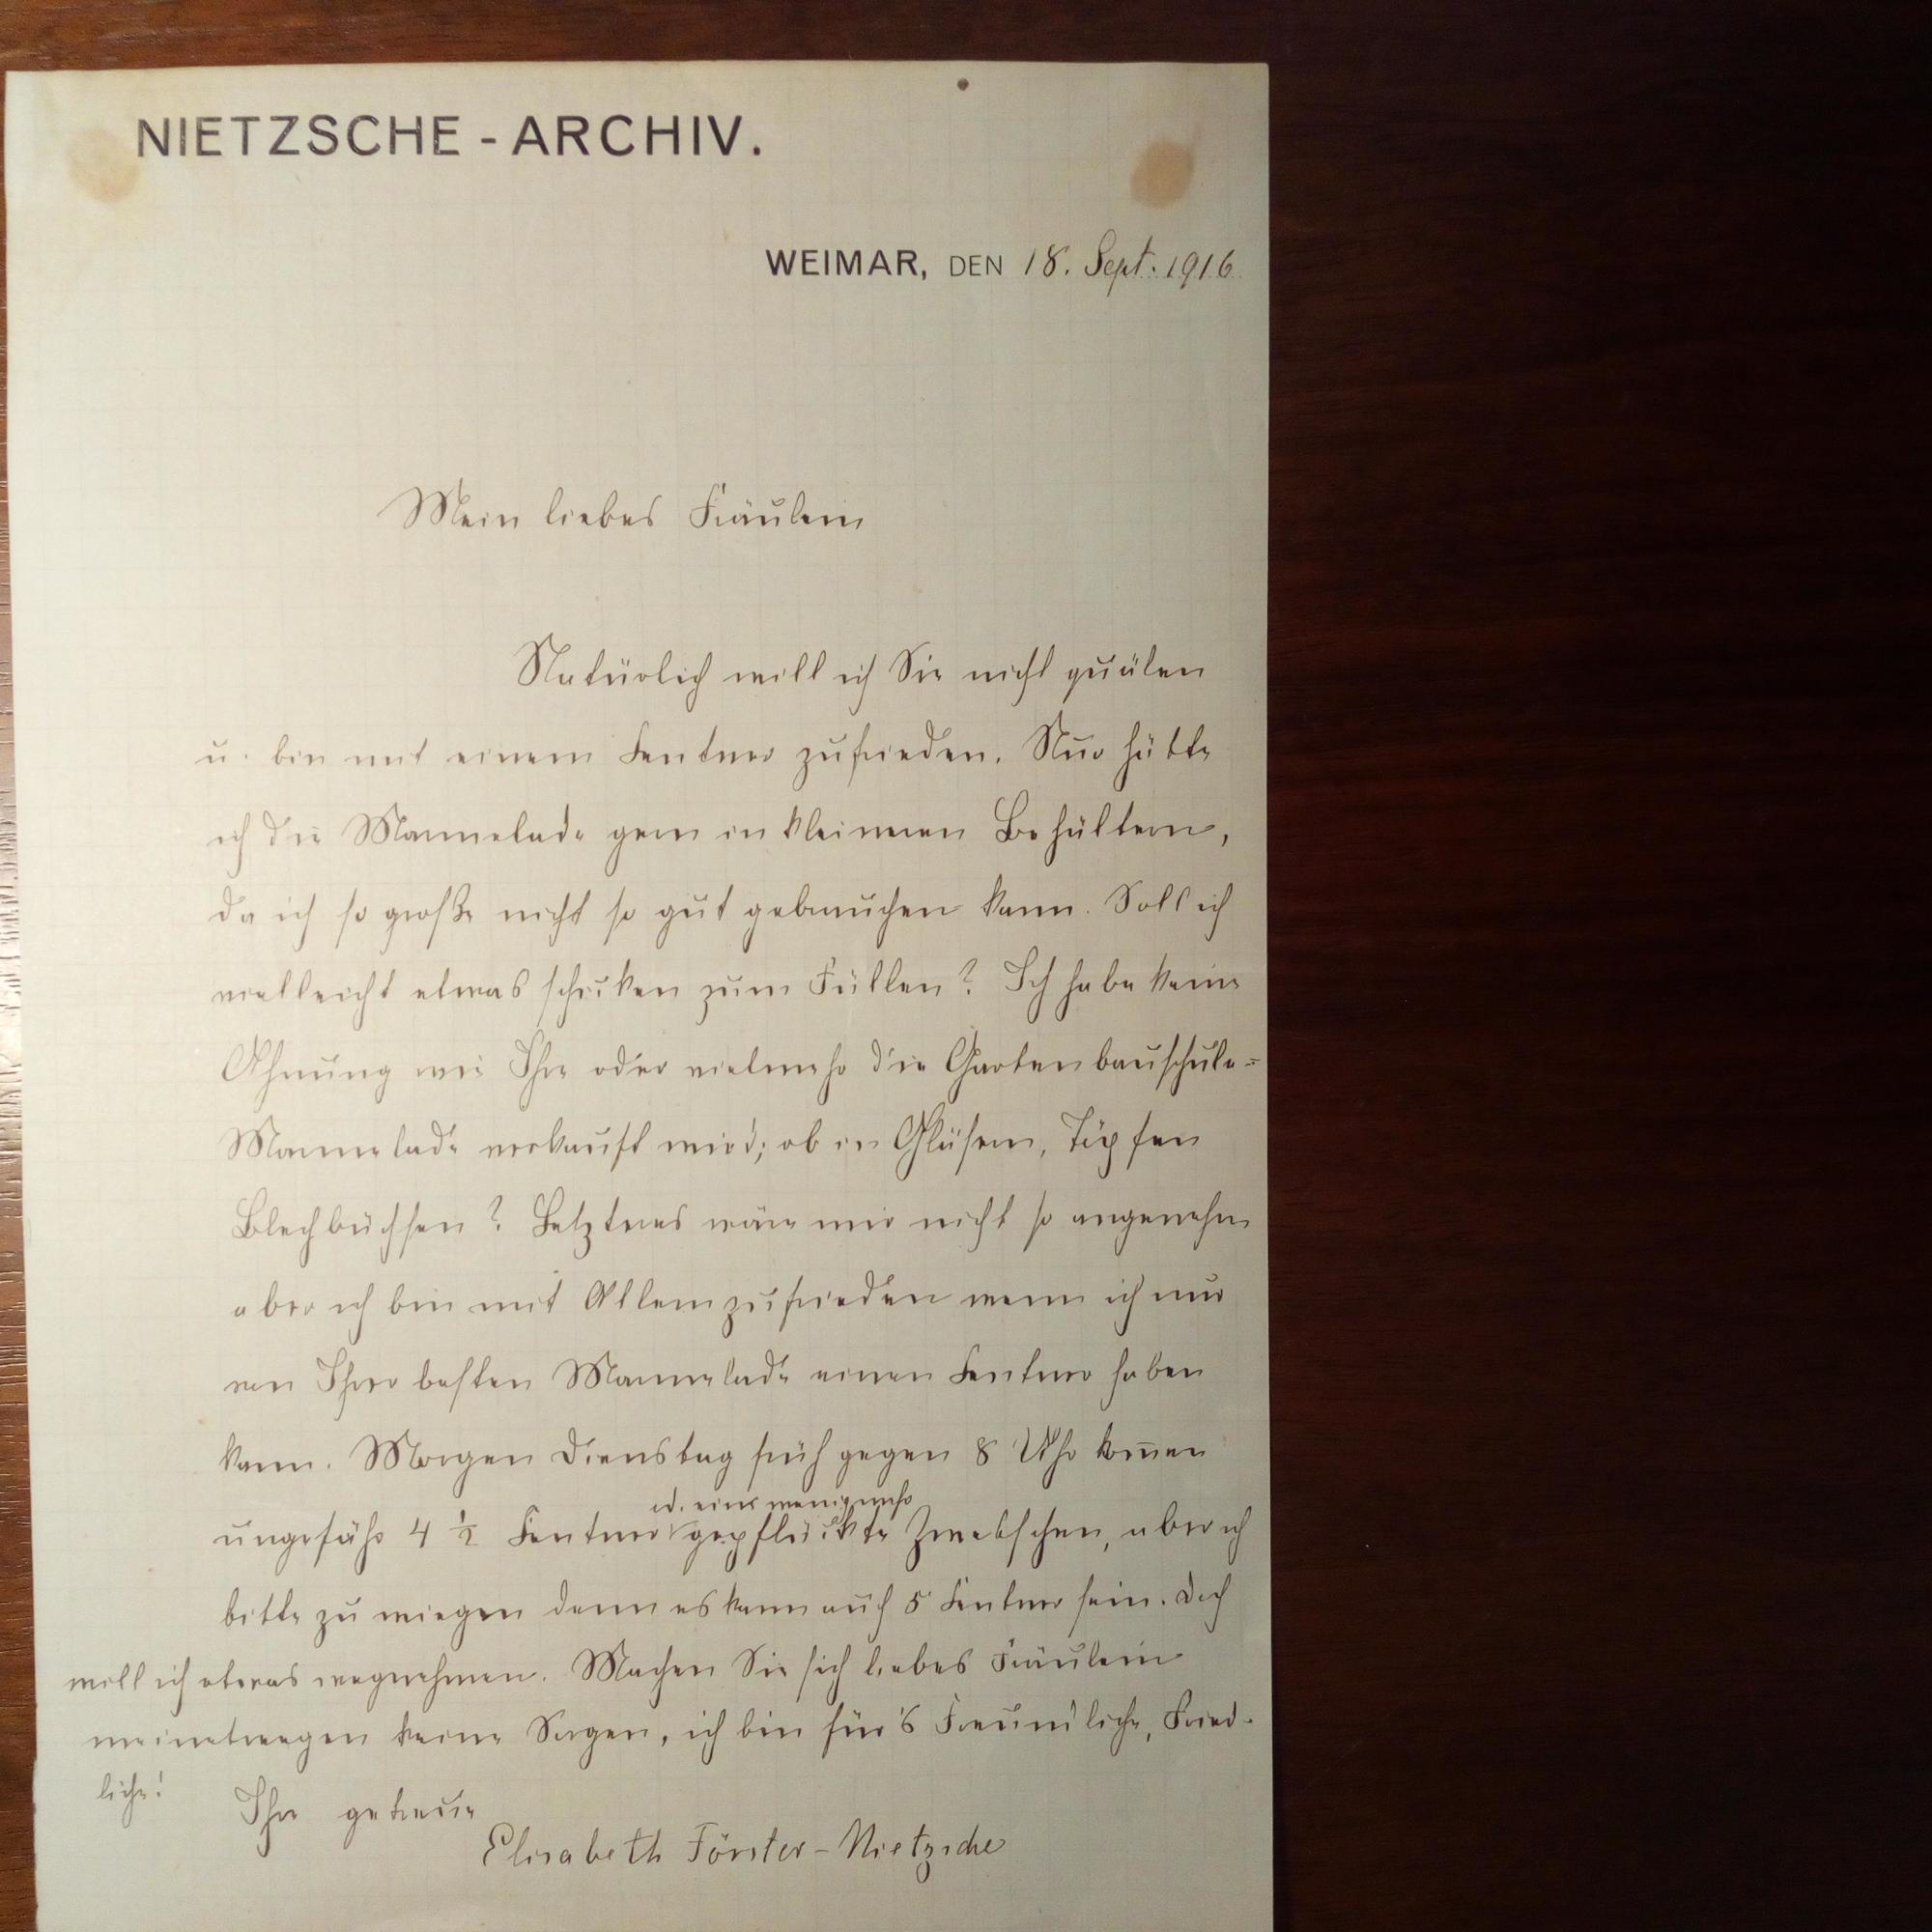 NIETZSCHE - ARCHIV.
WEIMAR, DEN 18. Sept. 1916
Mein liebes Fräulein
Natürlich will ich Sie nicht quälen
u. bin mit einem Centner zufrieden. Nur hätte
ich die Marmelade gern in kleineren Behältern,
da ich so große nicht so gut gebrauchen kann. Soll ich
vielleicht etwas schicken zum Füllen? Ich habe keine
Ahnung wie Ihre oder vielmehr die Gartenbauschule=
Marmelade verkauft wird; ob in Gläsern, Töpfen
Blechbüchsen? Letzteres wäre mir nicht so angenehm
aber ich bin mit Allem zufrieden wenn ich nur
von Ihrer besten Marmelade einen Centner haben
kann. Morgen Dienstag früh gegen 8 Uhr kom̅en
od. eine wenig mehr
ungefähr 4 ½ Centner gepflückte Zwetschen, aber ich
bitte zu wiegen denn es kann auch 5 Centner sein. Doch
will ich etwas wegnehmen. Machen Sie sich liebes Fräulein
meinetwegen keine Sorgen, ich bin für's Freundliche, Fried-
liche!
Ihre getreue
Elisabeth Förster-Nietzsche